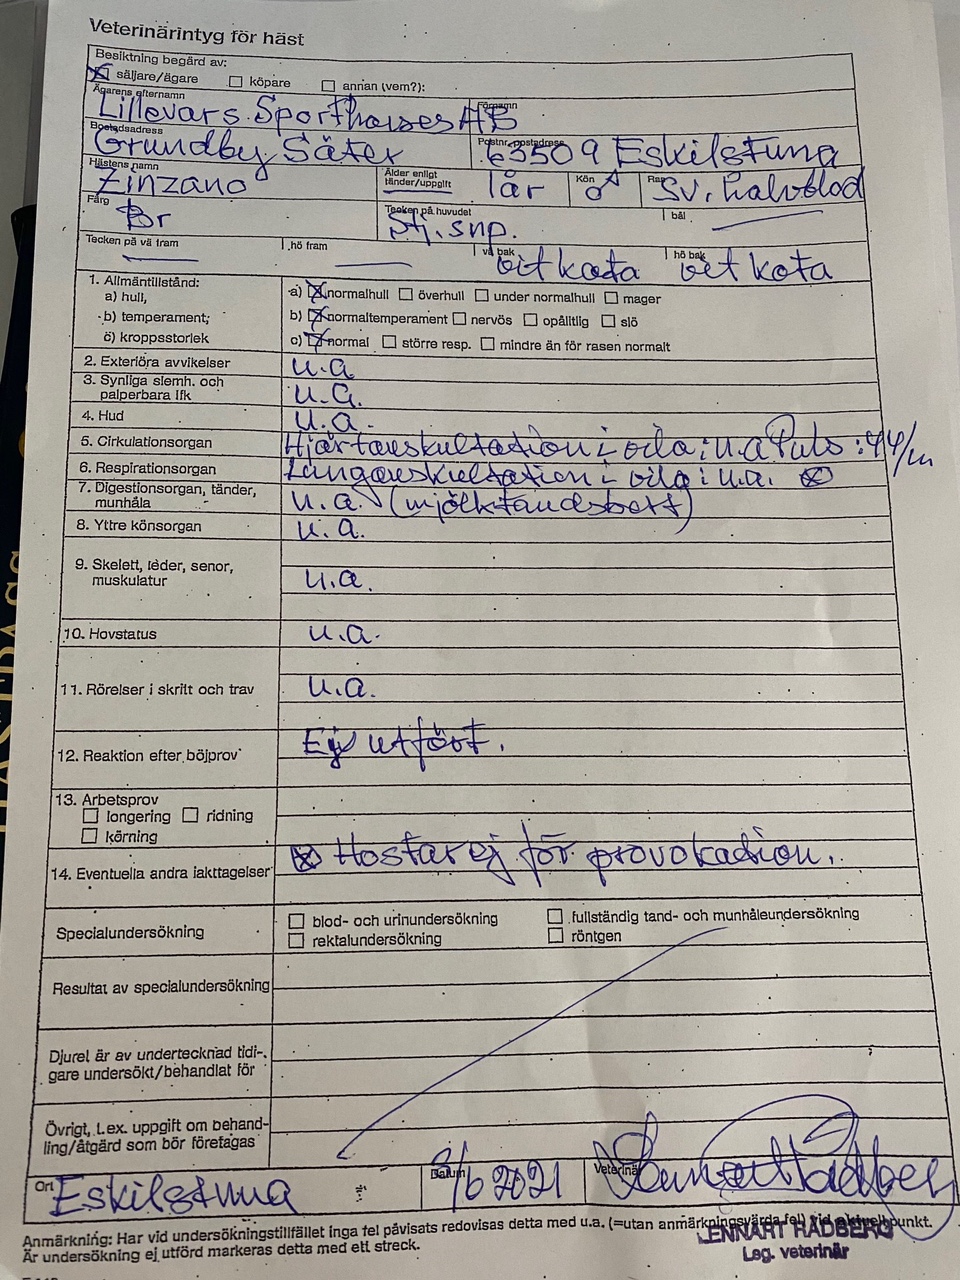 Veterinärintyg för häst
Besiktning begärd av:
säljare/ägare köpare annan (vem?):
Ägarens efternamn Förnamn
Lillevars Sporthorses AB
Bostadsadress Postnr, postadress
Grundby Säter 63509 Eskilstuna
Hästens namn Ålder enligt tänder/uppgift Kön Ras
Zinzano 1år ♂ Sv. halvblod
Färg Tecken på huvudet bål
Br Stj. snp.
Tecken på vä fram hö fram vä bak hö bak
vit kota vit kota
1. Allmäntillstånd:
a) hull, a) normalhull överhull under normalhull mager
b) temperament; b) normaltemperament nervös opålitlig slö
c) kroppsstorlek c) normal större resp. mindre än för rasen normalt
2. Exteriöra avvikelser u.a.
3. Synliga slemh. och palperbara lfk u.a.
4. Hud u.a.
5. Cirkulationsorgan Hjärtauskultation i vila: u.a Puls: 44/m
6. Respirationsorgan Lungauskultation i vila: u.a.
7. Digestionsorgan, tänder, munhåla u.a. (mjölktandsbett)
8. Yttre könsorgan u.a.
9. Skelett, leder, senor, muskulatur u.a.
10. Hovstatus u.a.
11. Rörelser i skritt och trav u.a.
12. Reaktion efter böjprov Ej utfört.
13. Arbetsprov
longering ridning
körning
14. Eventuella andra iakttagelser Hostar ej för provokation.
Specialundersökning blod- och urinundersökning fullständig tand- och munhåleundersökning
rektalundersökning röntgen
Resultat av specialundersökning
Djuret är av undertecknad tidigare undersökt/behandlat för
Övrigt, t.ex. uppgift om behandling/åtgärd som bör företagas
Ort Datum Veterinär
Eskilstuna /6 2021 Lennart Rådberg
Anmärkning: Har vid undersökningstillfället inga fel påvisats redovisas detta med u.a. (=utan anmärkningsvärda fel) vid aktuell punkt.
Är undersökning ej utförd markeras detta med ett streck.
LENNART RÅDBERG
Leg. veterinär